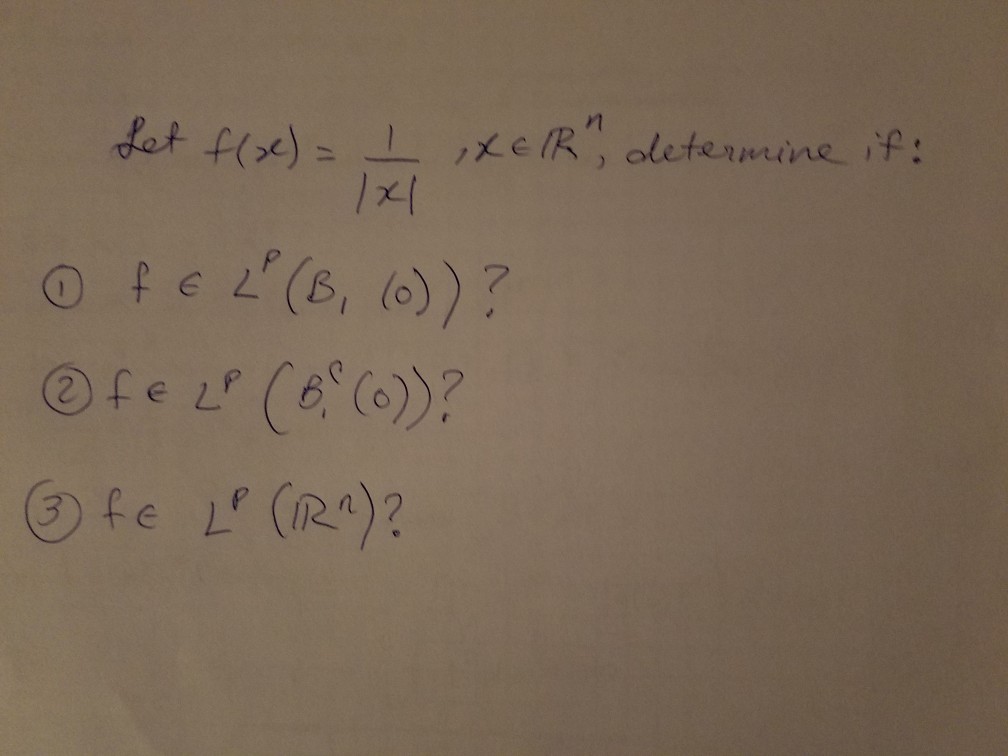 Let f(x) = 1/|x| , x ∈ ℝⁿ, determine if:
① f ∈ Lᵖ (B₁ (0)) ?
② f ∈ Lᵖ (B₁ᶜ (0)) ?
③ f ∈ Lᵖ (ℝⁿ) ?